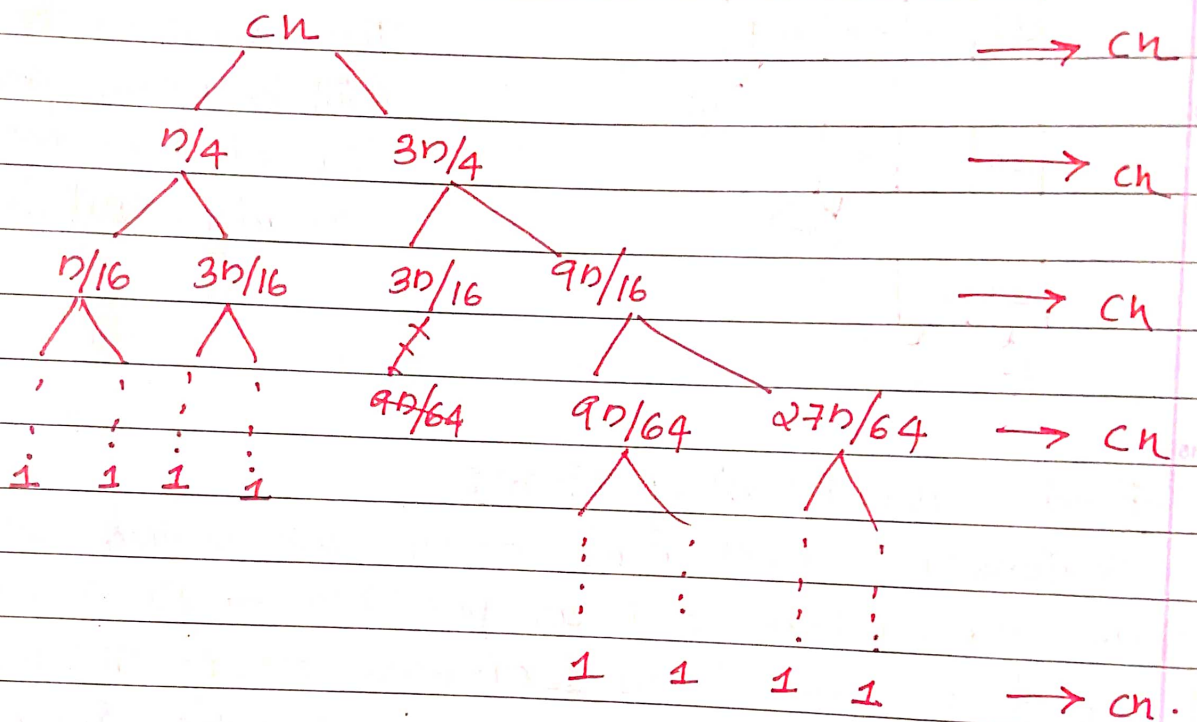 cn → cn
n/4 3n/4 → cn
n/16 3n/16 3n/16 9n/16 → cn
9n/64 9n/64 27n/64 → cn
1 1 1 1
1 1 1 1 → cn.